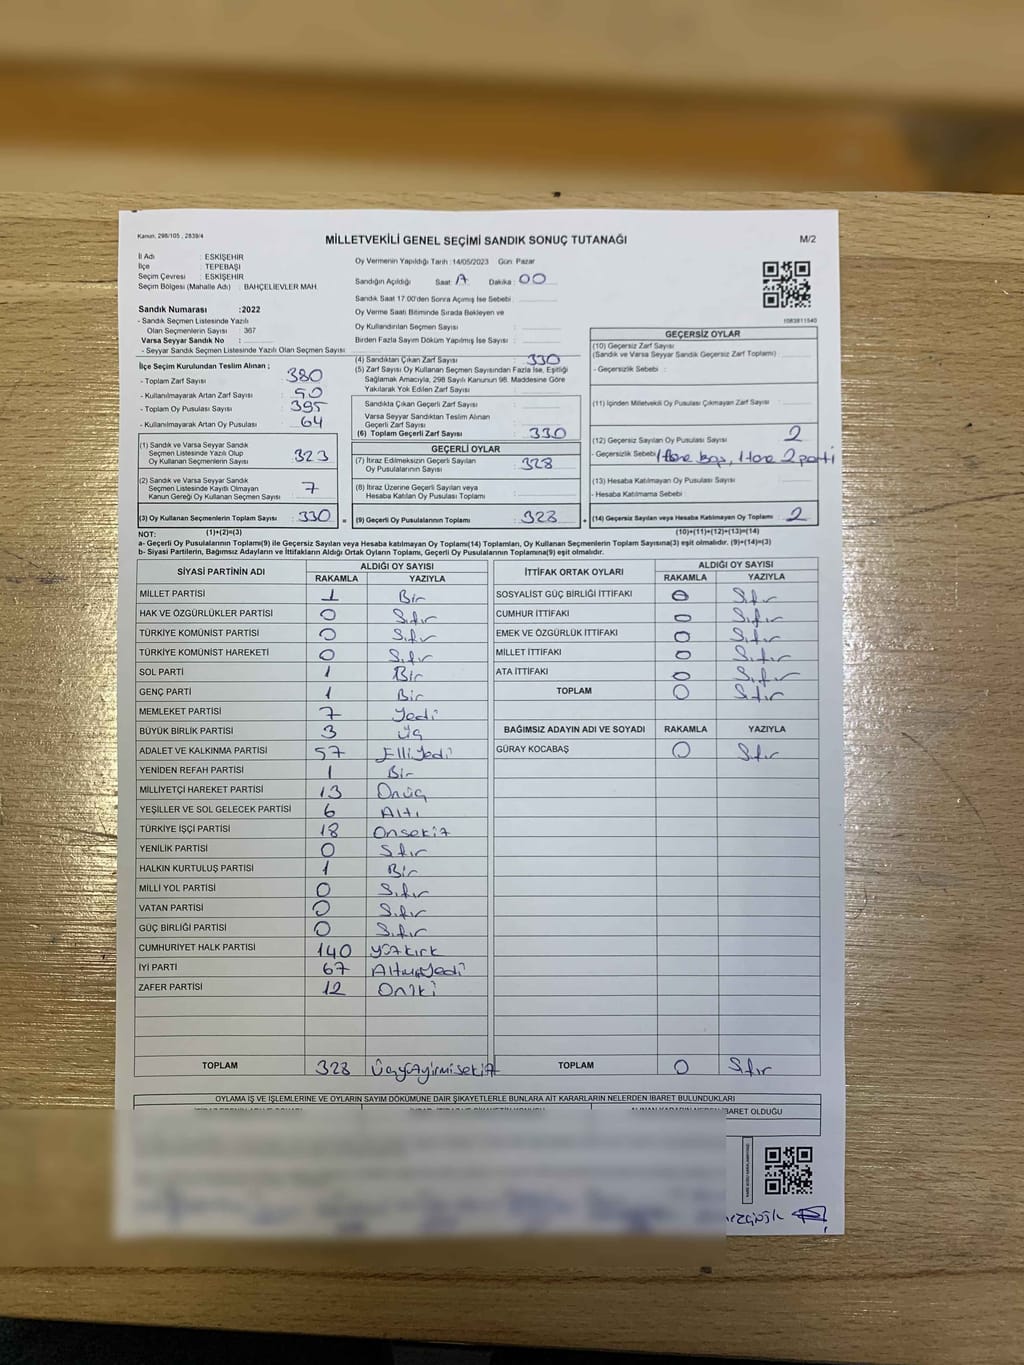 Kanun. 298/105 , 2839/4
MİLLETVEKİLİ GENEL SEÇİMİ SANDIK SONUÇ TUTANAĞI
M/2
İl Adı : ESKİŞEHİR
İlçe : TEPEBAŞI
Seçim Çevresi : ESKİŞEHİR
Seçim Bölgesi (Mahalle Adı) : BAHÇELİEVLER MAH.
Oy Vermenin Yapıldığı Tarih :14/05/2023 Gün: Pazar
Sandığın Açıldığı Saat: Dakika : 00
Sandık Saat 17.00'den Sonra Açımış İse Sebebi :
Oy Verme Saati Bitiminde Sırada Bekleyen ve
Oy Kullandırılan Seçmen Sayısı :
Birden Fazla Sayım Döküm Yapılmış İse Sayısı :
1083811540
Sandık Numarası :2022
- Sandık Seçmen Listesinde Yazılı
Olan Seçmenlerin Sayısı : 367
Varsa Seyyar Sandık No :
- Seyyar Sandık Seçmen Listesinde Yazılı Olan Seçmen Sayısı :
İlçe Seçim Kurulundan Teslim Alınan ;
- Toplam Zarf Sayısı : 380
- Kullanılmayarak Artan Zarf Sayısı : 50
- Toplam Oy Pusulası Sayısı : 395
- Kullanılmayarak Artan Oy Pusulası : 64
(1) Sandık ve Varsa Seyyar Sandık
Seçmen Listesinde Yazılı Olup
Oy Kullanan Seçmenlerin Sayısı : 323
(2) Sandık ve Varsa Seyyar Sandık
Seçmen Listesinde Kayıtlı Olmayan
Kanun Gereği Oy Kullanan Seçmen Sayısı : 7
(3) Oy Kullanan Seçmenlerin Toplam Sayısı : 330
(4) Sandıktan Çıkan Zarf Sayısı : 330
(5) Zarf Sayısı Oy Kullanan Seçmen Sayısından Fazla İse, Eşitliği
Sağlamak Amacıyla, 298 Sayılı Kanunun 98. Maddesine Göre
Yakılarak Yok Edilen Zarf Sayısı :
Sandıkta Çıkan Geçerli Zarf Sayısı :
Varsa Seyyar Sandıktan Teslim Alınan
Geçerli Zarf Sayısı :
(6) Toplam Geçerli Zarf Sayısı : 330
GEÇERLİ OYLAR
(7) İtiraz Edilmeksizin Geçerli Sayılan
Oy Pusulalarının Sayısı : 328
(8) İtiraz Üzerine Geçerli Sayılan veya
Hesaba Katılan Oy Pusulası Toplamı :
= (9) Geçerli Oy Pusulalarının Toplamı : 328
GEÇERSİZ OYLAR
(10) Geçersiz Zarf Sayısı
(Sandık ve Varsa Seyyar Sandık Geçersiz Zarf Toplamı) :
- Geçersizlik Sebebi :
(11) İçinden Milletvekili Oy Pusulası Çıkmayan Zarf Sayısı :
(12) Geçersiz Sayılan Oy Pusulası Sayısı : 2
- Geçersizlik Sebebi : 1 tane boş, 1 tane 2 parti
(13) Hesaba Katılmayan Oy Pusulası Sayısı :
- Hesaba Katılmama Sebebi :
+ (14) Geçersiz Sayılan veya Hesaba Katılmayan Oy Toplamı : 2
NOT: (1)+(2)=(3) (10)+(11)+(12)+(13)=(14)
a- Geçerli Oy Pusulalarının Toplamı(9) ile Geçersiz Sayılan veya Hesaba katılmayan Oy Toplamı(14) Toplamları, Oy Kullanan Seçmenlerin Toplam Sayısına(3) eşit olmalıdır. (9)+(14)=(3)
b- Siyasi Partilerin, Bağımsız Adayların ve İttifakların Aldığı Ortak Oyların Toplamı, Geçerli Oy Pusulalarının Toplamına(9) eşit olmalıdır.
SİYASİ PARTİNİN ADI ALDIĞI OY SAYISI
RAKAMLA YAZIYLA
MİLLET PARTİSİ 1 Bir
HAK VE ÖZGÜRLÜKLER PARTİSİ 0 Sıfır
TÜRKİYE KOMÜNİST PARTİSİ 0 Sıfır
TÜRKİYE KOMÜNİST HAREKETİ 0 Sıfır
SOL PARTİ 1 Bir
GENÇ PARTİ 1 Bir
MEMLEKET PARTİSİ 7 Yedi
BÜYÜK BİRLİK PARTİSİ 3 Üç
ADALET VE KALKINMA PARTİSİ 57 Elliyedi
YENİDEN REFAH PARTİSİ 1 Bir
MİLLİYETÇİ HAREKET PARTİSİ 13 Onüç
YEŞİLLER VE SOL GELECEK PARTİSİ 6 Altı
TÜRKİYE İŞÇİ PARTİSİ 18 Onsekiz
YENİLİK PARTİSİ 0 Sıfır
HALKIN KURTULUŞ PARTİSİ 1 Bir
MİLLİ YOL PARTİSİ 0 Sıfır
VATAN PARTİSİ 0 Sıfır
GÜÇ BİRLİĞİ PARTİSİ 0 Sıfır
CUMHURİYET HALK PARTİSİ 140 Yüzkırk
İYİ PARTİ 67 Altmışyedi
ZAFER PARTİSİ 12 Oniki
TOPLAM 328 Üçyüzyirmisekiz
İTTİFAK ORTAK OYLARI ALDIĞI OY SAYISI
RAKAMLA YAZIYLA
SOSYALİST GÜÇ BİRLİĞİ İTTİFAKI 0 Sıfır
CUMHUR İTTİFAKI 0 Sıfır
EMEK VE ÖZGÜRLÜK İTTİFAKI 0 Sıfır
MİLLET İTTİFAKI 0 Sıfır
ATA İTTİFAKI 0 Sıfır
TOPLAM 0 Sıfır
BAĞIMSIZ ADAYIN ADI VE SOYADI RAKAMLA YAZIYLA
GÜRAY KOCABAŞ 0 Sıfır
TOPLAM 0 Sıfır
OYLAMA İŞ VE İŞLEMLERİNE VE OYLARIN SAYIM DÖKÜMÜNE DAİR ŞİKAYETLERLE BUNLARA AİT KARARLARIN NELERDEN İBARET BULUNDUKLARI
İBARET OLDUĞU